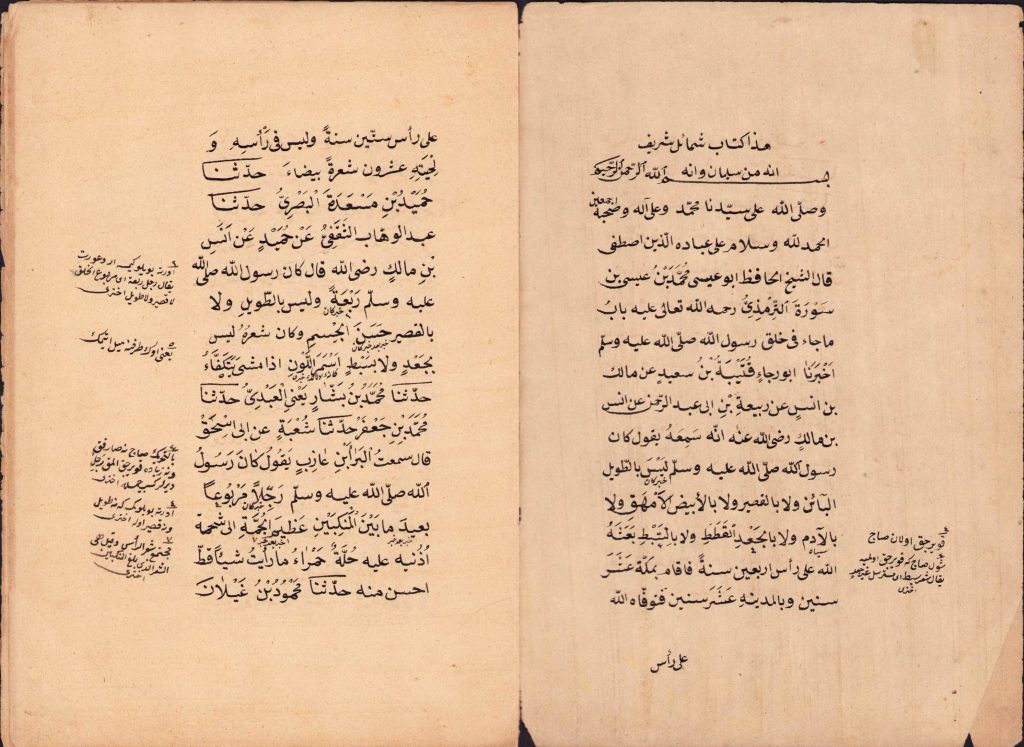 هذا كتاب شمائل شريف
انه من سليمان وانه
بسم الله الرحمن الرحيم
وصلى الله على سيدنا محمد وعلى آله وصحبه اجمعين
الحمد لله وسلام على عباده الذين اصطفى
قال الشيخ الحافظ ابو عيسى محمد بن عيسى بن
سورة الترمذي رحمه الله تعالى عليه باب
ما جاء فى خلق رسول الله صلى الله عليه وسلم
اخبرنا ابو رجاء قتيبة بن سعيد عن مالك
بن انس عن ربيعة بن ابى عبد الرحمن عن انس
بن مالك رضى الله عنه انه سمعه يقول كان
رسول الله صلى الله عليه وسلم ليس بالطويل
البائن ولا بالقصير ولا بالأبيض الأمهق ولا
بالآدم ولا بالجعد القطط ولا بالسبط بعثه
الله على رأس اربعين سنة فاقام بمكة عشر
سنين وبالمدينه عشر سنين فتوفاه الله
على رأس
قويرجق اولان صاج
على رأس ستين سنة وليس فى رأسه و
لحيته عشرون شعرة بيضاء حدثنا
حميد بن مسعدة البصرى حدثنا
عبد الوهاب الثقفى عن حميد عن انس
بن مالك رضى الله قال كان رسول الله صلى الله
عليه وسلم ربعة وليس بالطويل ولا
بالقصير حسن الجسم وكان شعره ليس
بجعد ولا بسبط اسمر اللون اذا مشى يتكفاء
حدثنا محمد بن بشار يعنى العبدى حدثنا
محمد بن جعفر حدثنا شعبة عن ابى اسحق
قال سمعت البراء بن عازب يقول كان رسول
الله صلى الله عليه وسلم رجلا مربوعا
بعيد ما بين المنكبين عظيم الجمة الى شحمة
اذنيه عليه حلة حمراء ما رأيت شيئا قط
احسن منه حدثنا محمود بن غيلان
اورته بويلو
يقال رجل ربعة اى مربوع الخلق
لا قصير ولا طويل اخترى